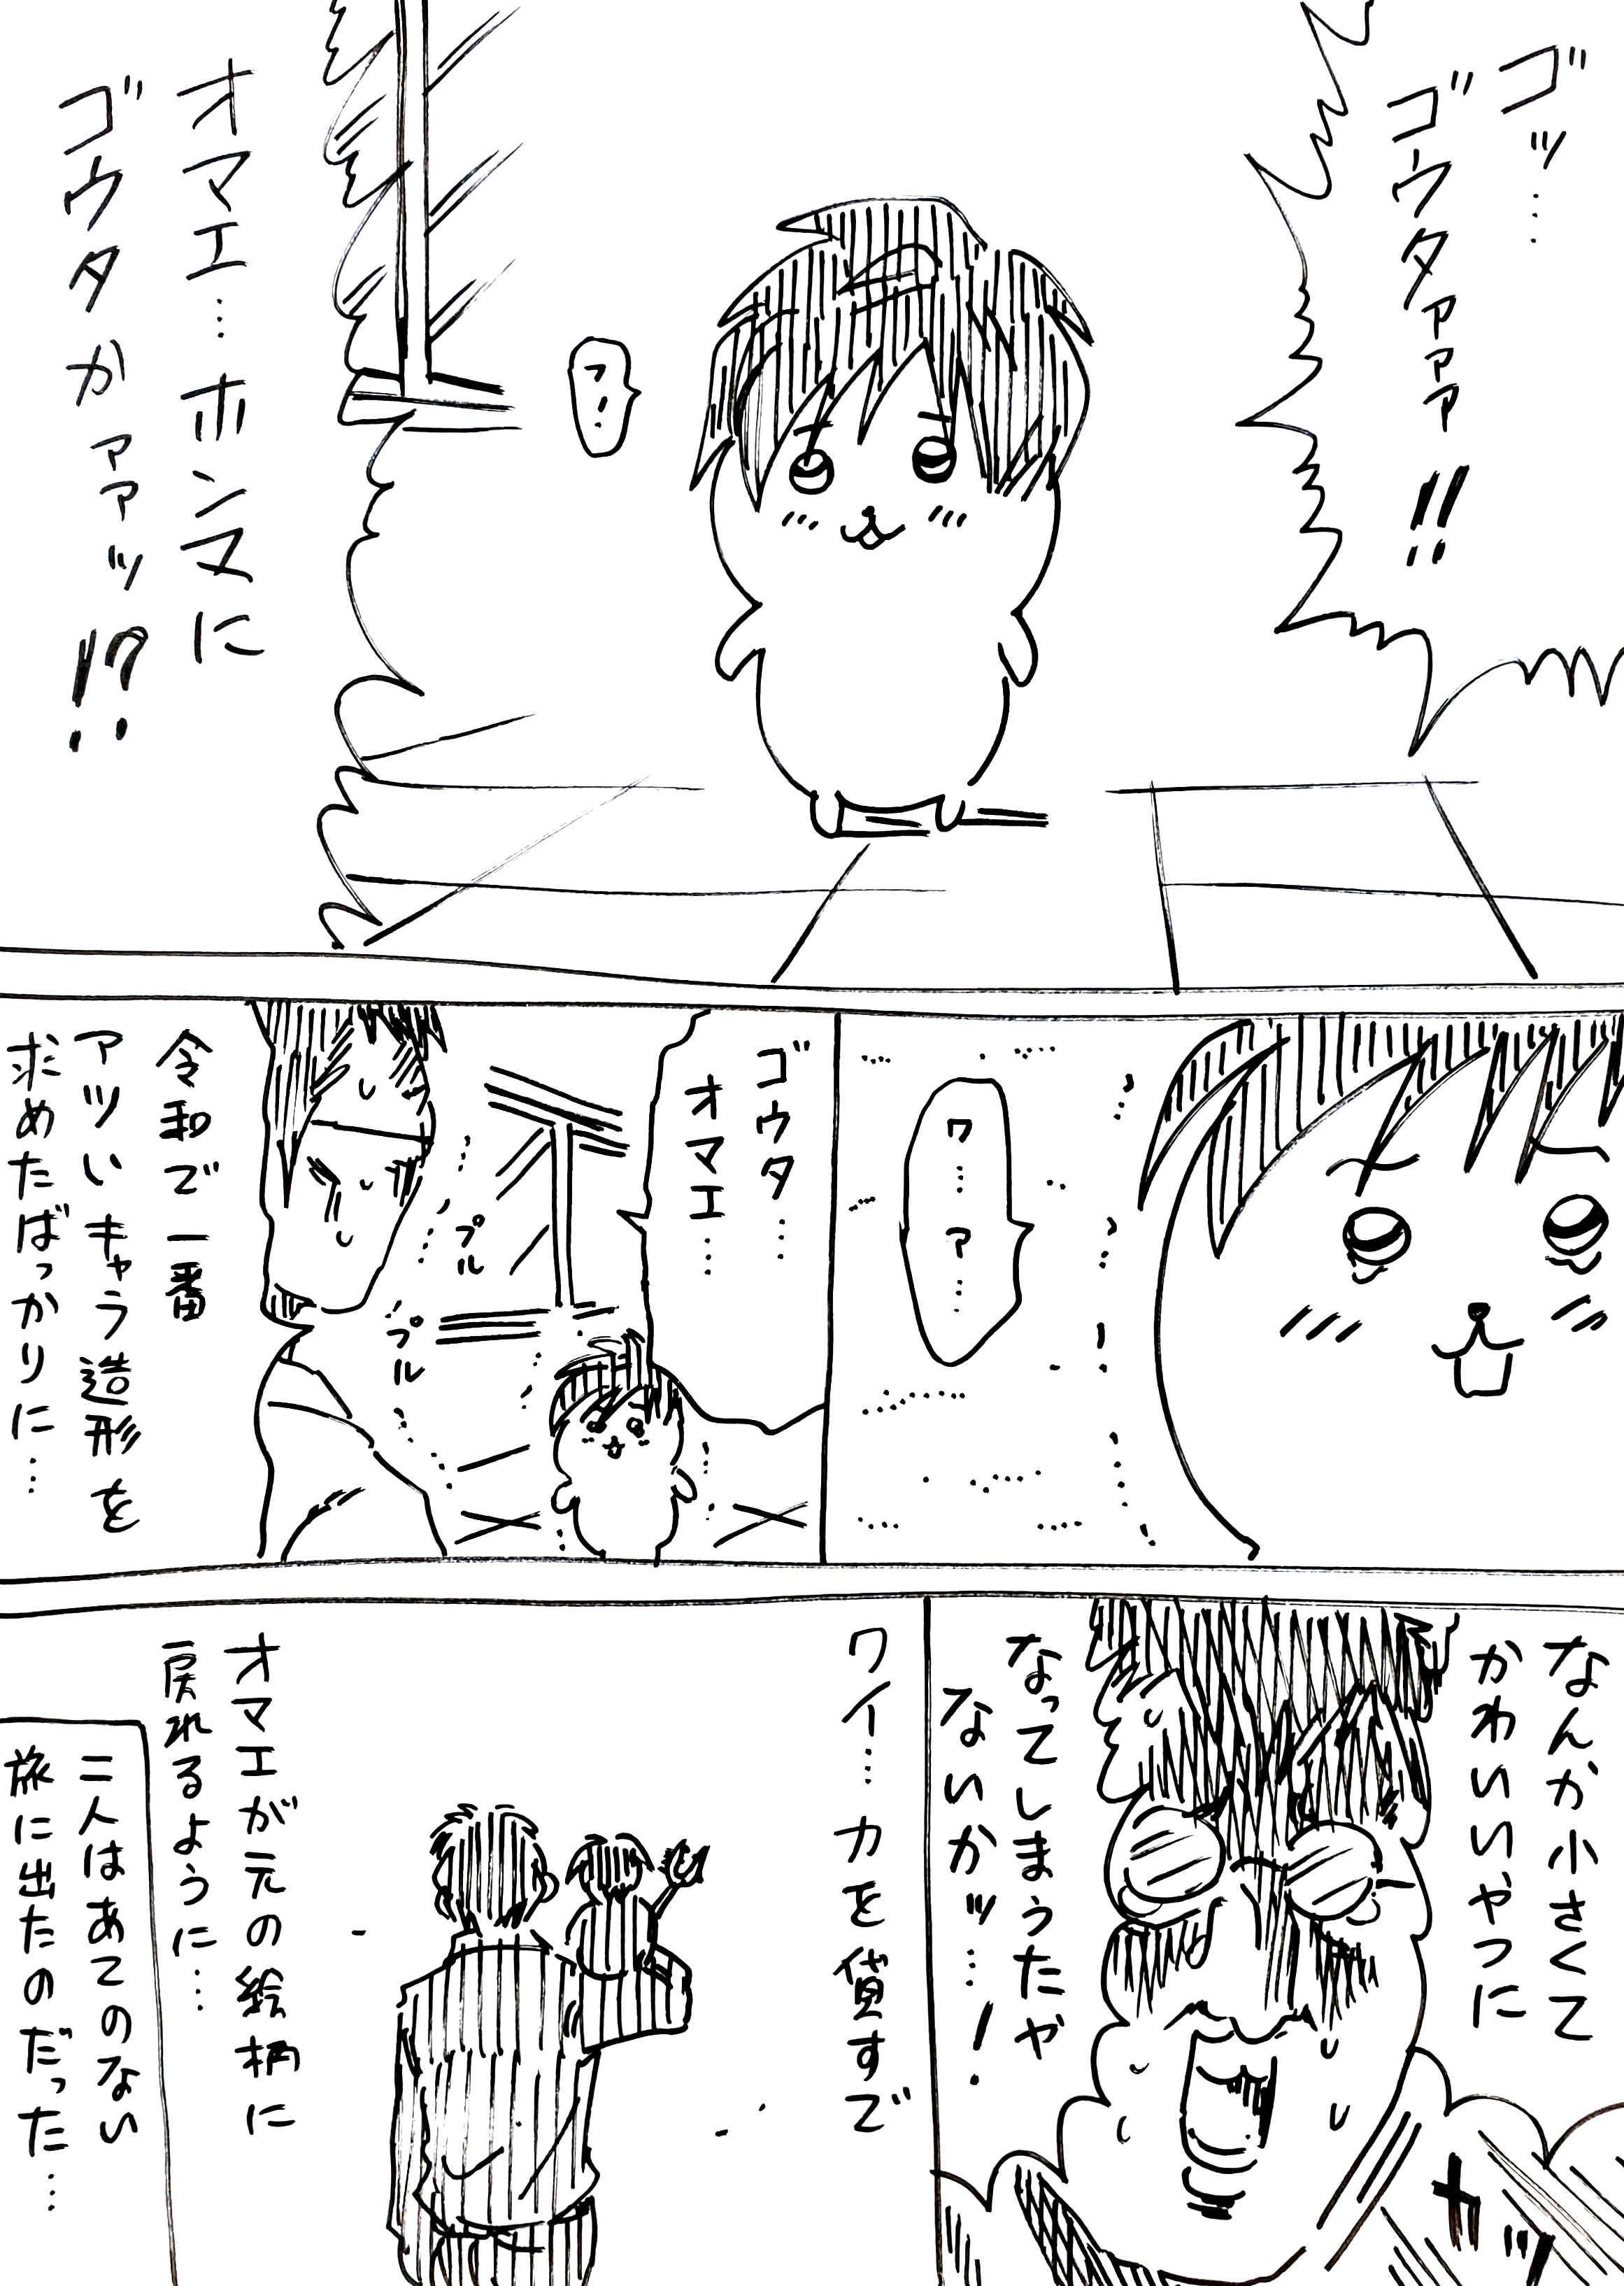 ゴッ…
ゴウタァァァ!!
フ!
オマエ…ホンマに
ゴウタかァァッ!?
ワ…ァ…
ゴウタ…
オマエ…
プル
プル
令和で一番
アツいキャラ造形を
求めたばっかりに…
なんか小さくて
かわいいやつに
なってしまうたや
ないかッ…!
カッ
ワイ…力を貸すで
オマエが元の絵柄に
戻れるように…
二人はあてのない
旅に出たのだった…